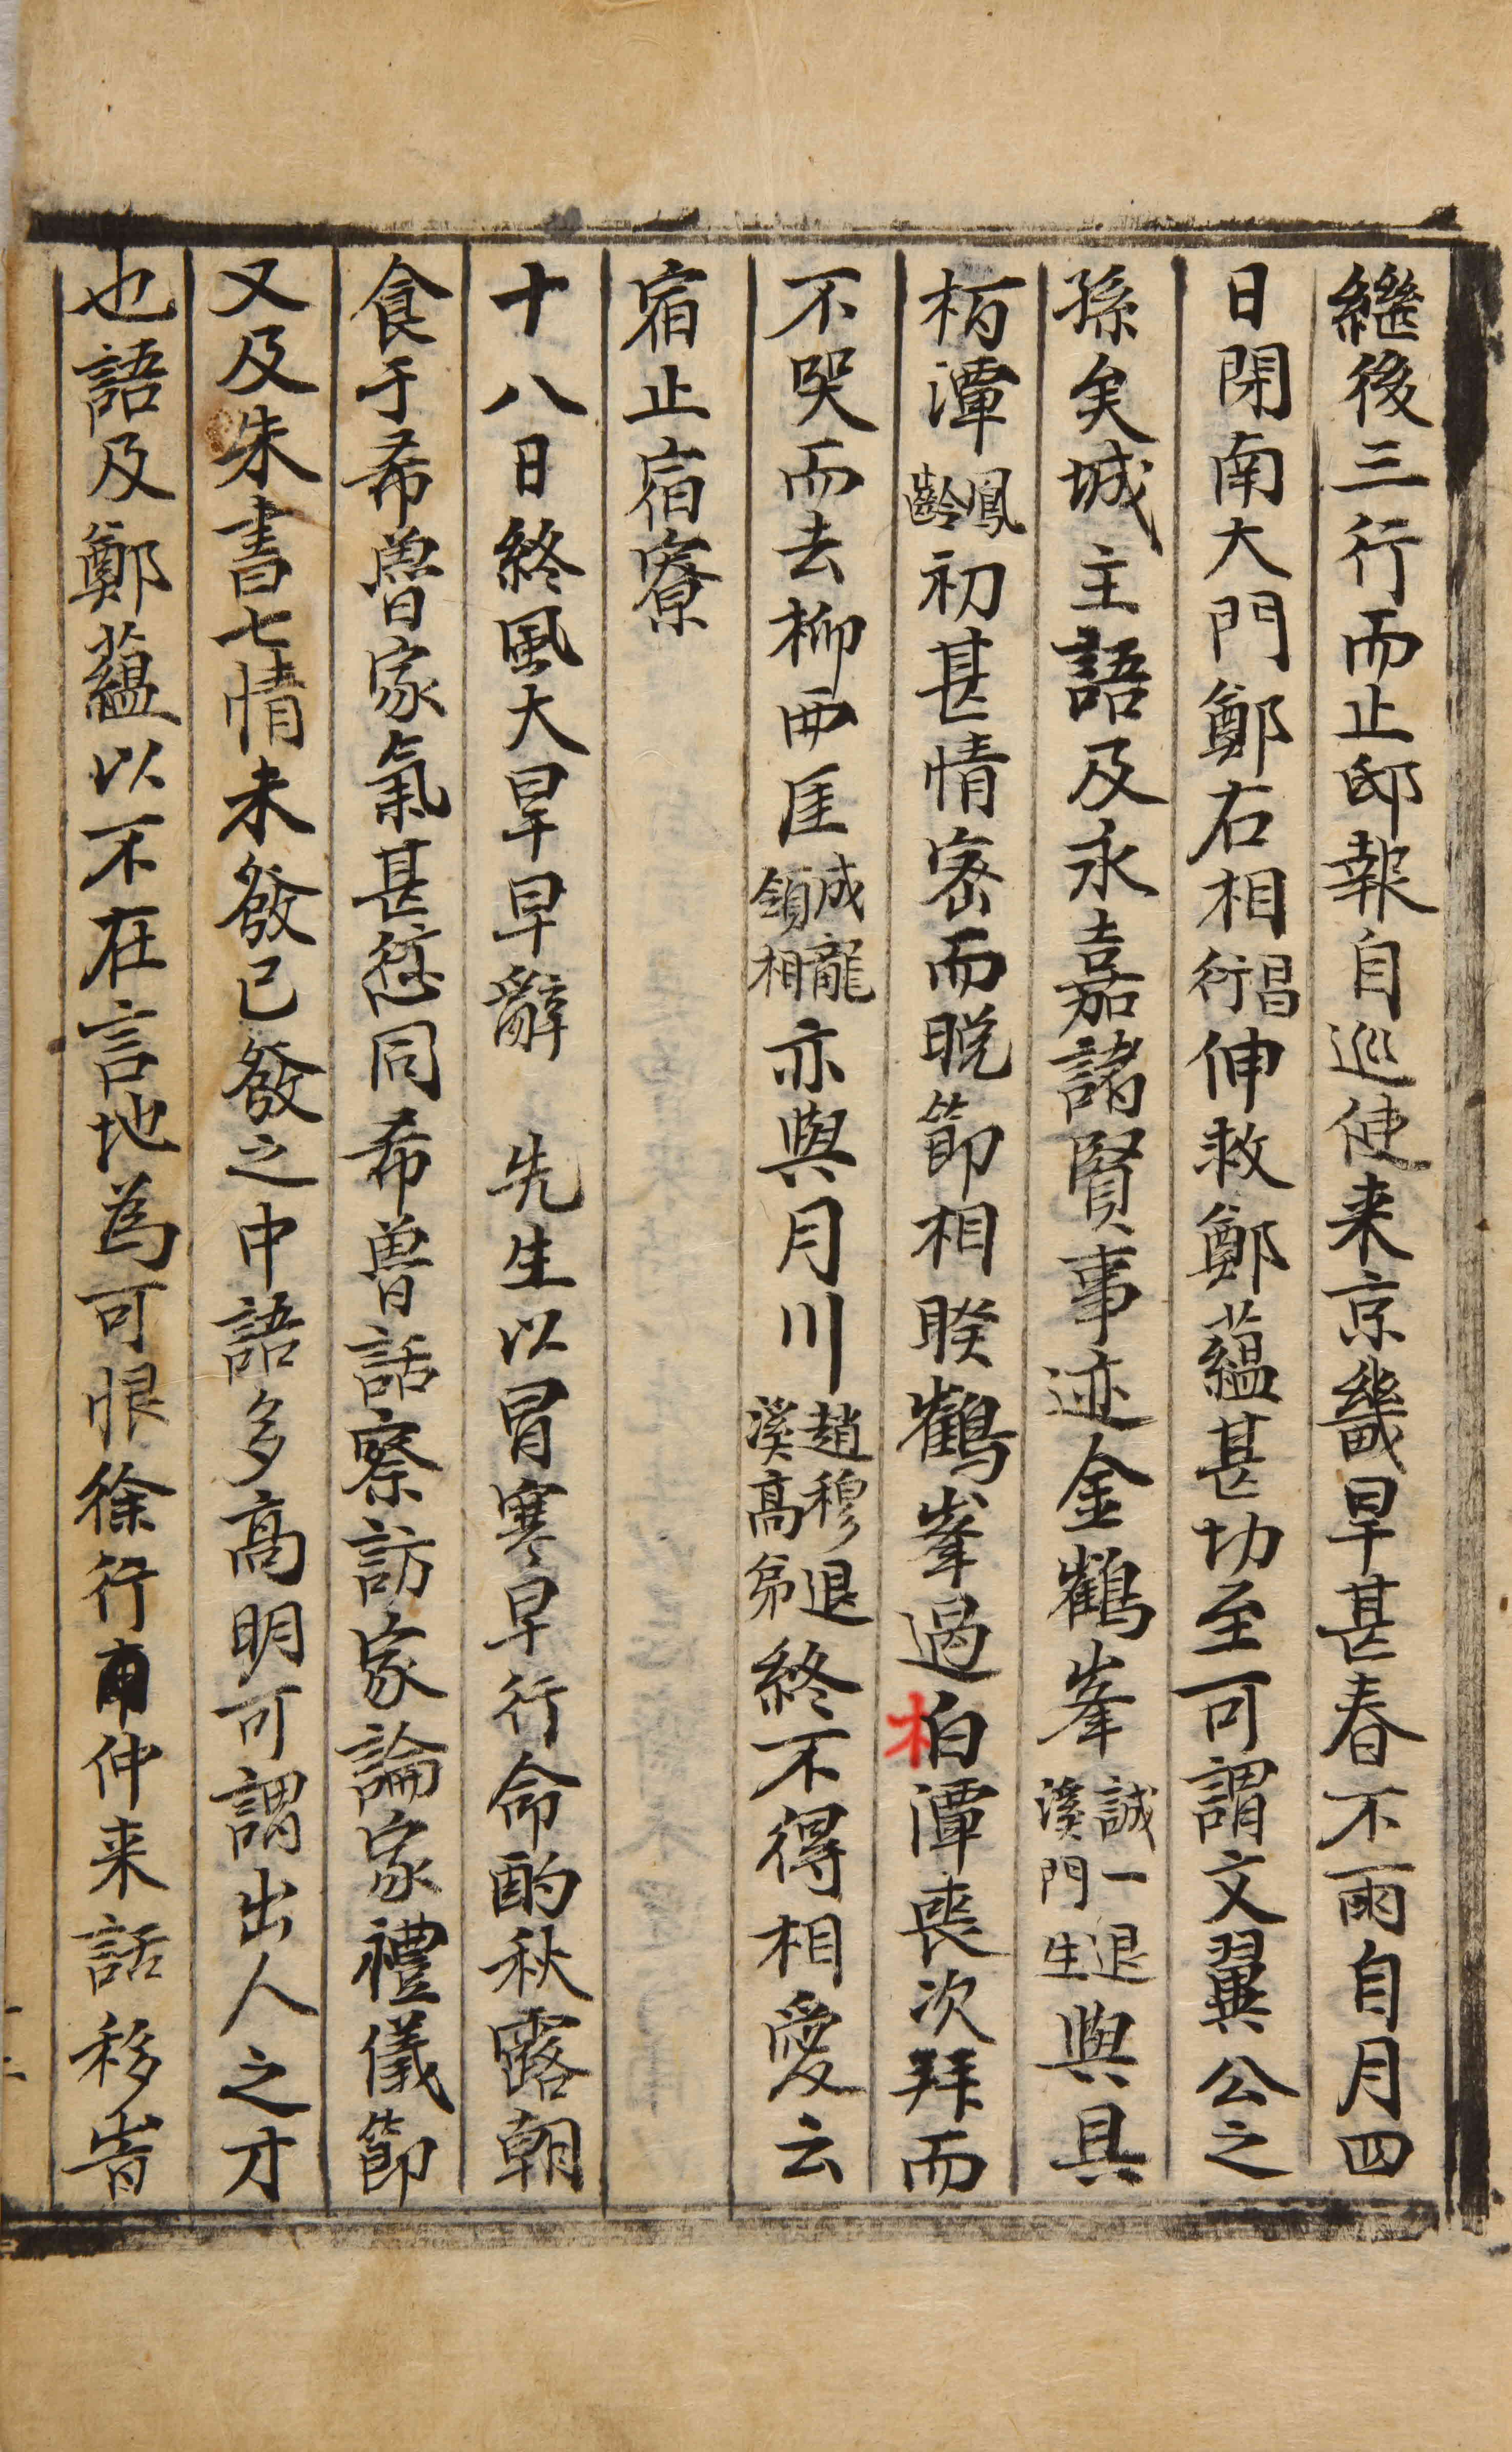 繼後三行而止邸報自巡使来京畿旱甚春不雨自月四
日閉南大門鄭右相昌衍伸救鄭蘊甚切至可謂文翼公之
孫矣城主語及永嘉諸賢事迹金鶴峯誠一退溪門生與具
栢潭鳳齡初甚情宻而晚節相睽鶴峯過柏潭喪次拜而
不哭而去柳西厓成龍領相亦與月川趙穆退溪高弟終不得相愛云
宿止宿寮
十八日終風大旱早辭 先生以冒寒早行命酌秋露朝
食于希魯家氣甚愆同希曽話察訪家論家禮儀節
又及朱書七情未發已發之中語多高明可謂出人之才
也語及鄭蘊以不在言地為可恨徐行甫仲来話移時